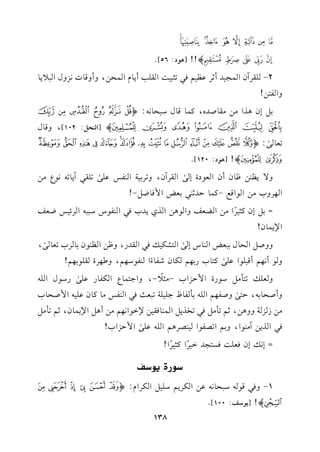 مَّا مِن دَآبَّةٍ إِلَّا هُوَ ءَاخِذٌۢ بِنَاصِيَتِهَآ
إِنَّ رَبِّى عَلَىٰ صِرَٰطٍ مُّسْتَقِيمٍ﴾!! [هود: ٥٦].
٢- للقرآن المجيد أثر عظيم في تثبيت القلب أيام المحن، وأوقات نزول البلايا
والفتن!
بل إن هذا من مقاصده، كما قال سبحانه: ﴿قُلْ نَزَّلَهُۥ رُوحُ ٱلْقُدُسِ مِن رَّبِّكَ
بِٱلْحَقِّ لِيُثَبِّتَ ٱلَّذِينَ ءَامَنُوا۟ وَهُدًى وَبُشْرَىٰ لِلْمُسْلِمِينَ﴾ [النحل: ١٠٢]، وقال
تعالىٰ: ﴿وَكُلًّا نَّقُصُّ عَلَيْكَ مِنْ أَنۢبَآءِ ٱلرُّسُلِ مَا نُثَبِّتُ بِهِۦ فُؤَادَكَ وَجَآءَكَ فِى هَٰذِهِ ٱلْحَقُّ وَمَوْعِظَةٌ
وَذِكْرَىٰ لِلْمُؤْمِنِينَ﴾! [هود: ١٢٠].
ولا يظنن ظان أن العودة إلىٰ القرآن، وتربية النفس علىٰ تلقي آياته نوع من
الهروب من الواقع -كما حدثني بعض الأفاضل-!
= بل إن كثيرًا من الضعف والوهن الذي يدب في النفوس سببه الرئيس ضعف
الإيمان!
ووصل الحال ببعض الناس إلىٰ التشكيك في القدر، وظن الظنون بالرب تعالىٰ،
ولو أنهم أقبلوا علىٰ كتاب ربهم لكان شفاءًا لنفوسهم، وطهرة لقلوبهم!
ولعلك تتأمل سورة الأحزاب -مثلًا-، واجتماع الكفار علىٰ رسول الله
وأصحابه، حتىٰ وصفهم الله بألفاظ جليلة تبعث في النفس ما كان عليه الأصحاب
من زلزلة ووهن، ثم تأمل في تخذيل المنافقين لإخوانهم من أهل الإيمان، ثم تأمل
في الذين آمنوا، وبم اتصفوا لينصرهم الله علىٰ الأحزاب!
= إنك إن فعلت فستجد خيرًا كثيرًا!
سورة يوسف
١- وفي قوله سبحانه عن الكريم سليل الكرام: ﴿وَقَدْ أَحْسَنَ بِىٓ إِذْ أَخْرَجَنِى مِنَ
ٱلسِّجْنِ﴾! [يوسف: ١٠٠].
١٣٨